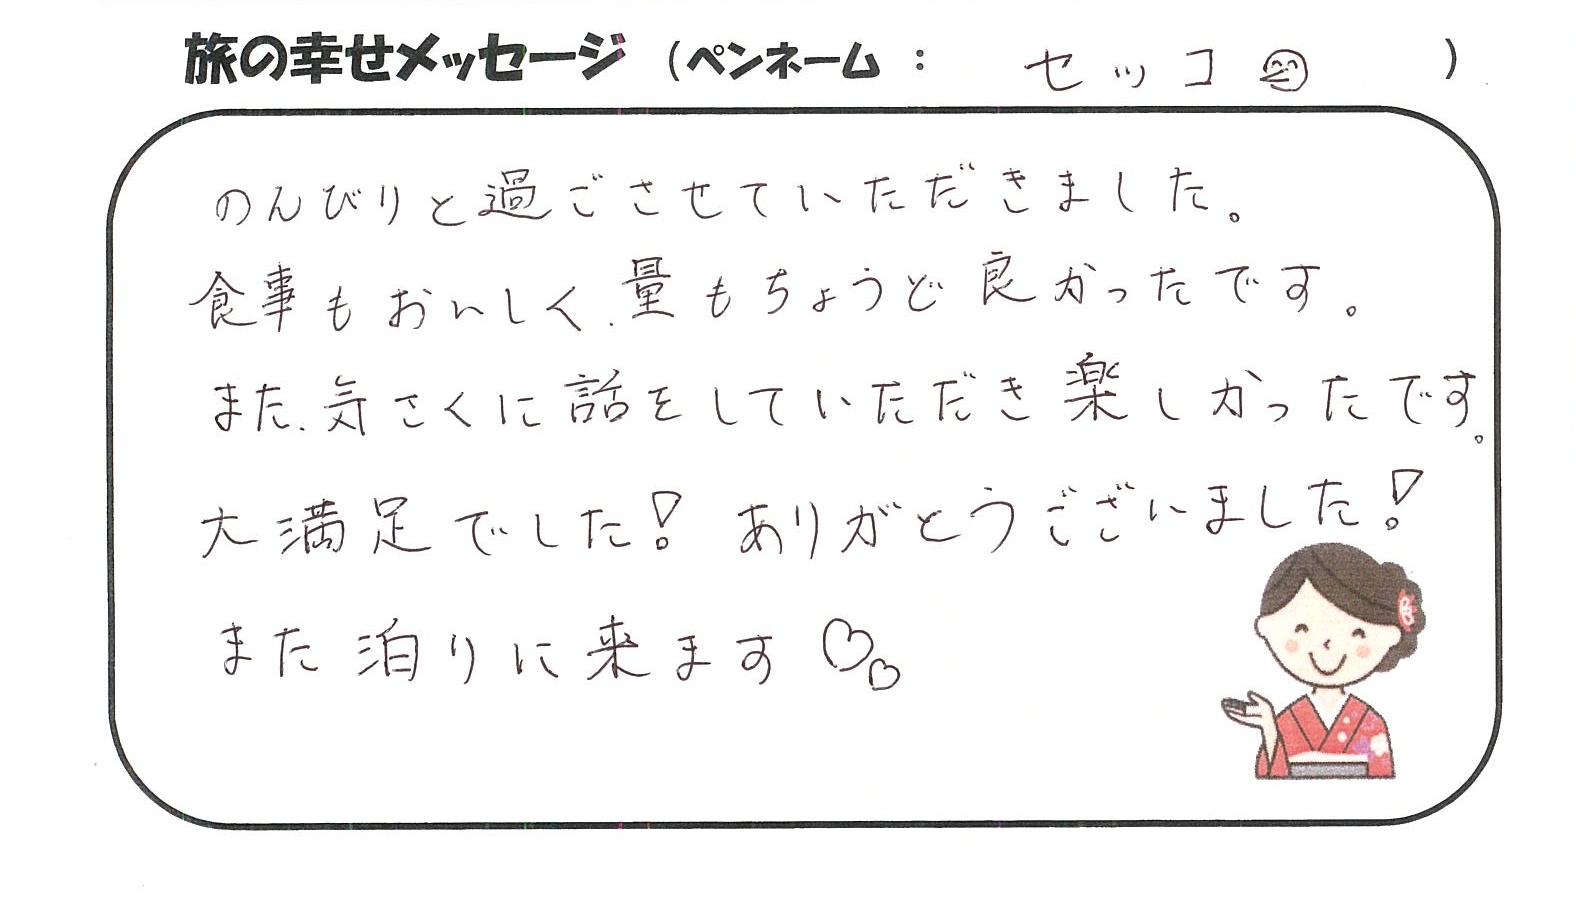 旅の幸せメッセージ（ペンネーム：セッコ）
のんびりと過ごさせていただきました。
食事もおいしく、量もちょうど良かったです。
また、気さくに話をしていただき楽しかったです。
大満足でした！ ありがとうございました！
また泊りに来ます♡♡